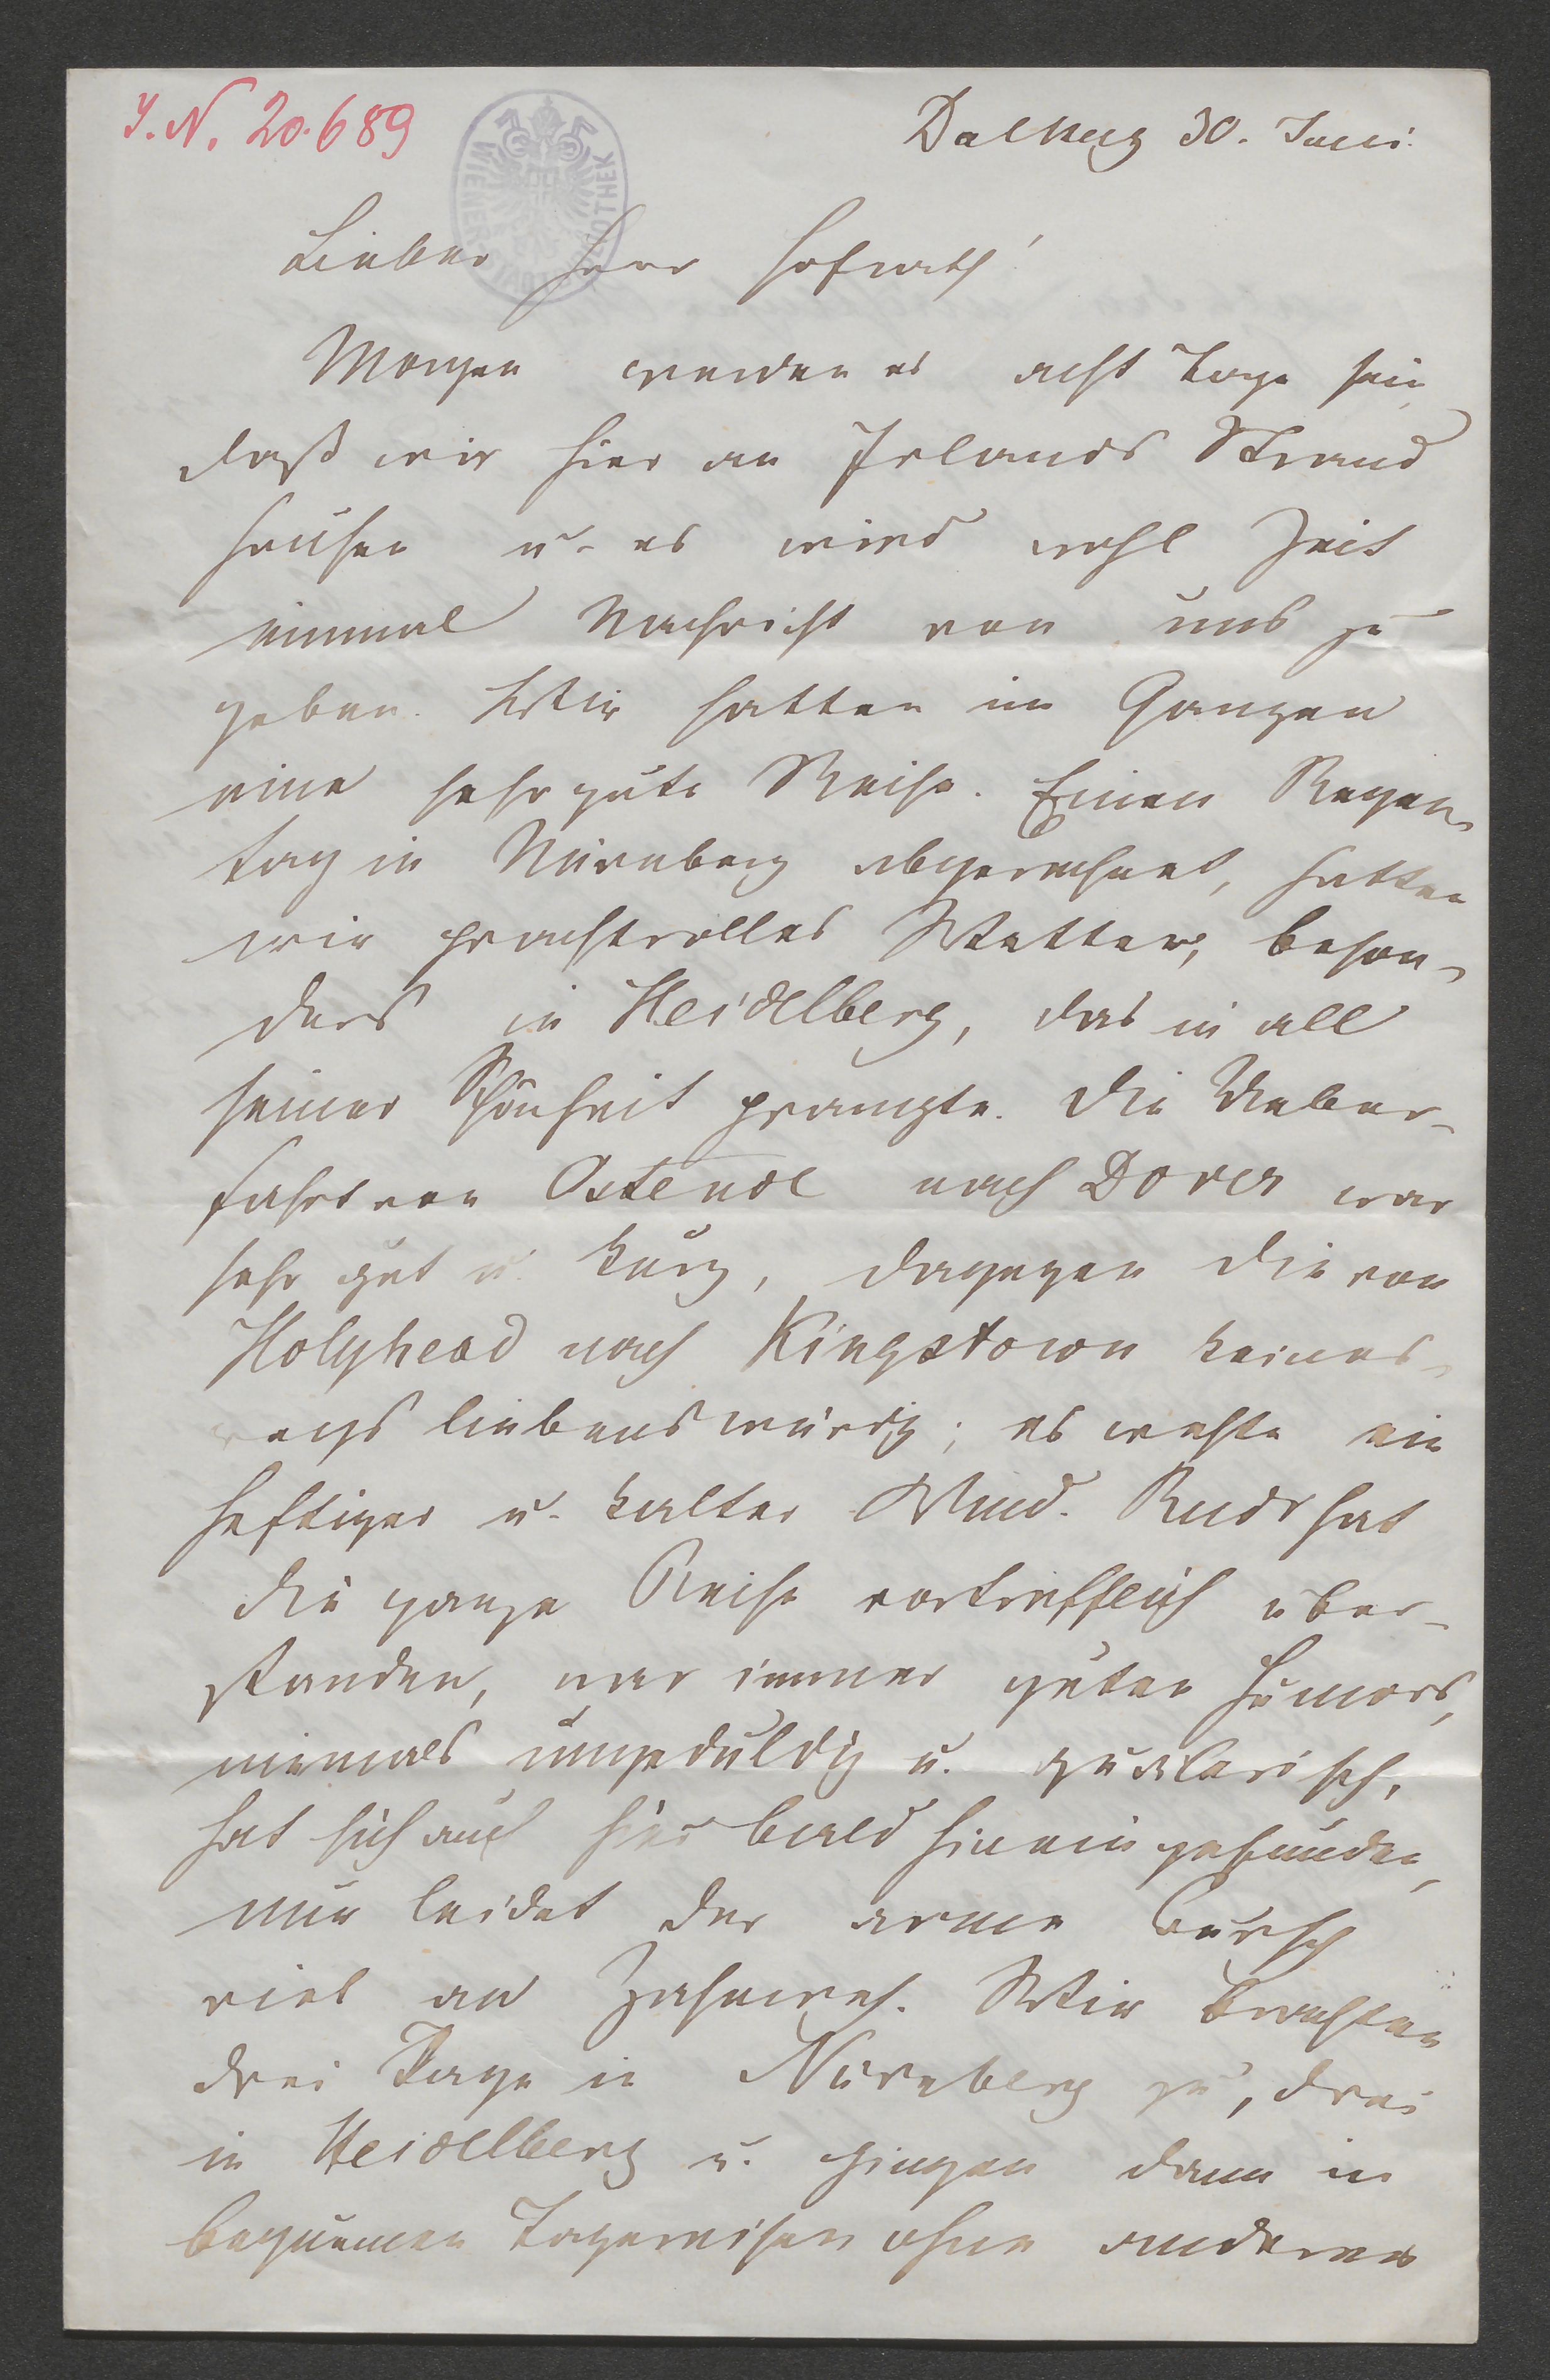 I. N. 20.689
Dalkey 30. Juni.
Lieber Herr Hofrath!
Morgen werden es acht Tage sein
daß wir hier an Irlands Strand
hausen u. es wird wohl Zeit
einmal Nachricht von uns zu
geben. Wir hatten im Ganzen
eine sehr gute Reise. Einen Regen-
tag in Nürnberg abgerechnet, hatten
wir prachtvolles Wetter, beson-
ders in Heidelberg, das in all
seiner Schönheit prangte. Die Ueber-
fahrt von Ostende nach Dover war
sehr gut u. kurz, dagegen die von
Holyhead nach Kingstown keines-
wegs liebenswürdig; es wehte ein
heftiger u. kalter Wind. Rudi hat
die ganze Reise vortrefflich über-
standen, war immer guten Humors,
niemals ungeduldig u. quälerisch,
hat sich auch hier bald hineingefunden,
nur leidet der arme Bursch
viel an Zahnweh. Wir brachten
drei Tage in Nürnberg zu, drei
in Heidelberg u. gingen dann in
bequemen Tagereisen ohne anderen